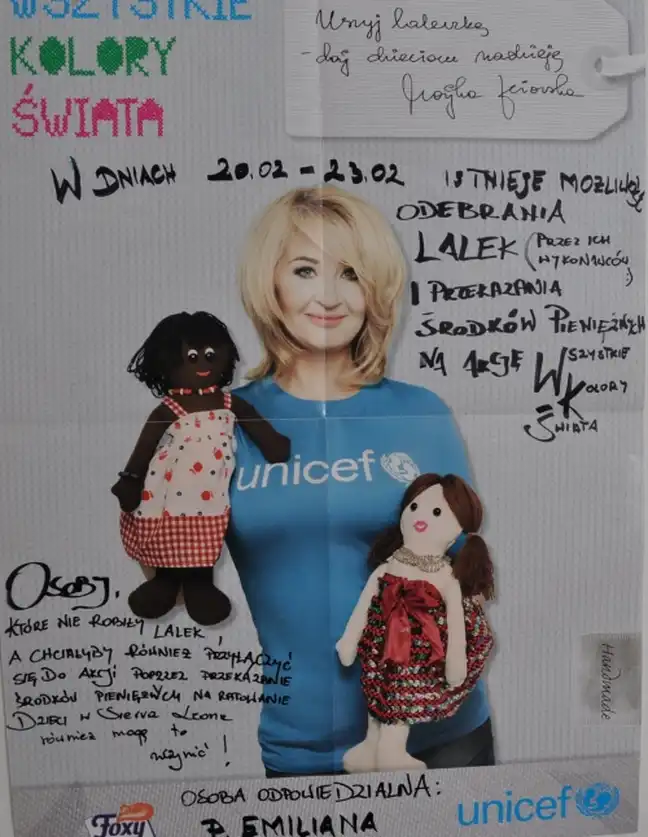 WSZYSTKIE
KOLORY
ŚWIATA
Uszyj laleczkę
- daj dzieciom nadzieję
Majka Jeżowska
W DNIACH 20.02 - 23.02 ISTNIEJE MOŻLIWOŚĆ
ODEBRANIA
LALEK (PRZEZ ICH
WYKONAWCÓW :)
I PRZEKAZANIA
ŚRODKÓW PIENIĘŻNYCH
NA AKCJĘ WSZYSTKIE
KOLORY
ŚWIATA
unicef
OSOBY,
KTÓRE NIE ROBIŁY LALEK,
A CHCIAŁYBY RÓWNIEŻ PRZYŁĄCZYĆ
SIĘ DO AKCJI POPRZEZ PRZEKAZANIE
ŚRODKÓW PIENIĘŻNYCH NA RATOWANIE
DZIECI W Sierra Leone
również mogą to
uczynić!
Handmade
OSOBA ODPOWIEDZIALNA:
P. EMILIANA
Foxy
unicef